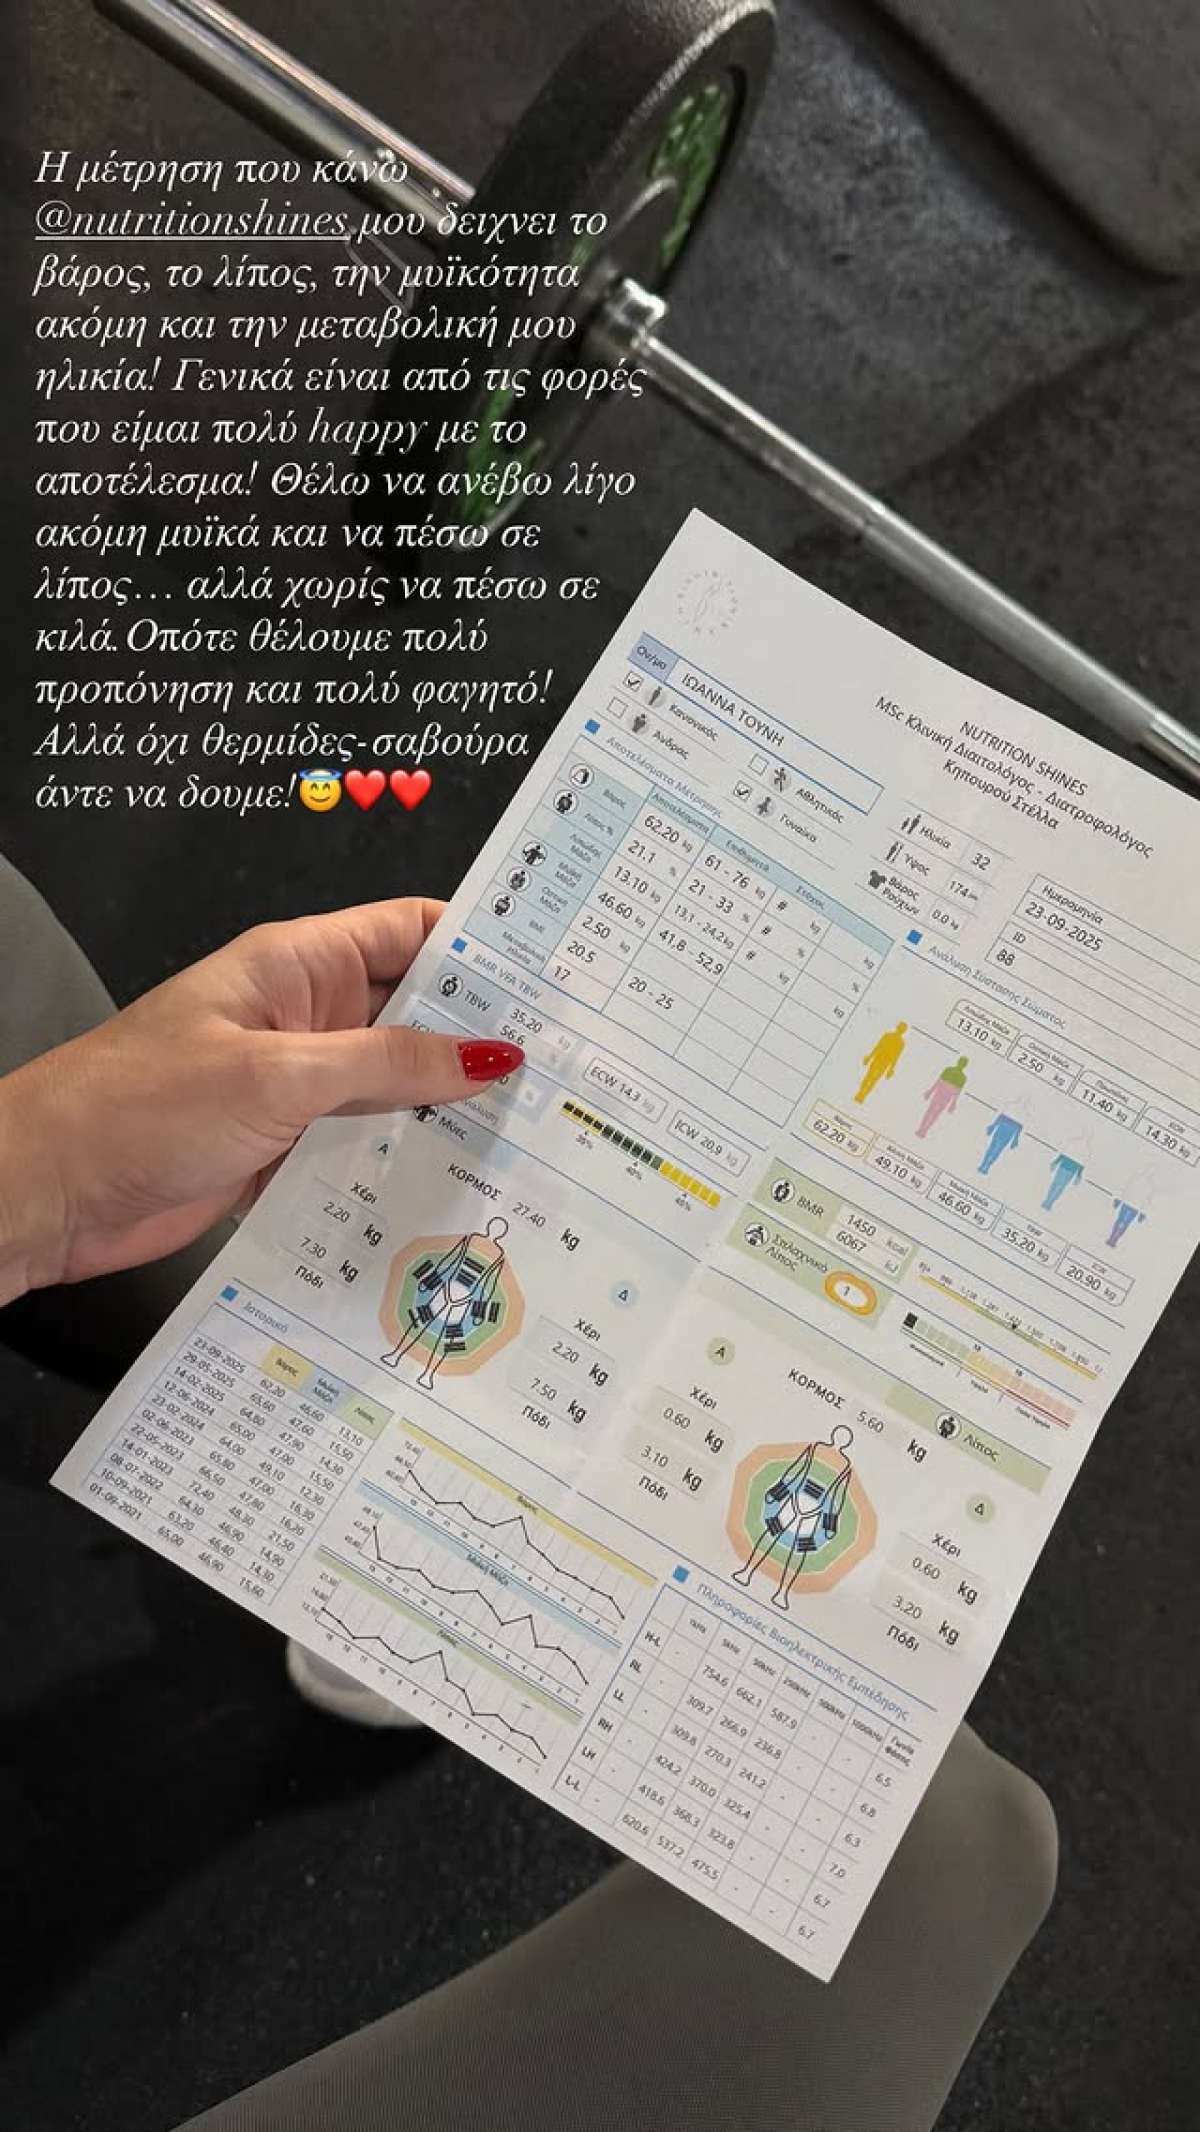 Η μέτρηση που κάνω
@nutritionshines μου δειχνει το
βάρος, το λίπος, την μυϊκότητα
ακόμη και την μεταβολική μου
ηλικία! Γενικά είναι από τις φορές
που είμαι πολύ happy με το
αποτέλεσμα! Θέλω να ανέβω λίγο
ακόμη μυϊκά και να πέσω σε
λίπος... αλλά χωρίς να πέσω σε
κιλά..Οπότε θέλουμε πολύ
προπόνηση και πολύ φαγητό!
Αλλά όχι θερμίδες-σαβούρα
άντε να δουμε!😇❤️❤️
NUTRITION SHINES
MSc Κλινική Διαιτολόγος - Διατροφολόγος
Κηπουρού Στέλλα
Ον/μο ΙΩΑΝΝΑ ΤΟΥΝΗ
Κανονικός Αθλητικός
Άνδρας Γυναίκα
Ηλικία 32
Ύψος 174 cm
Βάρος Ρούχων 0.0 kg
Ημερομηνία
23-09-2025
ID
88
Αποτελέσματα Μέτρησης
Αποτελέσματα Επιθυμητά Στόχος
Βάρος 62.20 kg 61 - 76 kg # kg
Λίπος % 21.1 % 21 - 33 % # %
Λιπώδης Μάζα 13.10 kg 13,1 - 24,2 kg # kg
Μυϊκή Μάζα 46.60 kg 41,8 - 52,9
Οστική Μάζα 2.50 kg
BMI 20.5 20 - 25
Μεταβολική ηλικία 17
Ανάλυση Σύστασης Σώματος
Λιπώδης Μάζα 13.10 kg
Οστική Μάζα 2.50 kg
11.40 kg
ECW 14.30 kg
Βάρος 62.20 kg
49.10 kg
Μυϊκή Μάζα 46.60 kg
TBW 35.20 kg
ICW 20.90 kg
BMR VFA TBW
TBW 35.20 kg
56.6 %
ECW 14,3 kg
ICW 20,9 kg
BMR 1450 kcal
6067 kJ
Σπλαχνικό Λίπος 1
Μύες
Α ΚΟΡΜΟΣ 27.40 kg Δ
Χέρι 2.20 kg
7.30 kg Πόδι
Χέρι 2.20 kg
7.50 kg Πόδι
Λίπος
Α ΚΟΡΜΟΣ 5.60 kg Δ
Χέρι 0.60 kg
3.10 kg Πόδι
Χέρι 0.60 kg
3.20 kg Πόδι
Ιστορικό
Βάρος Μυϊκή Μάζα Λίπος
23-09-2025 62.20 46.60 13,10
29-05-2025 65,60 47,60 15,50
14-02-2025 64,80 47,90 14,30
12-06-2024 65,00 47,00 15,50
23-02-2024 64,00 49,10 12,30
02-06-2023 65,80 47,00 16,30
22-05-2023 66,50 47,80 16,20
14-01-2023 72,40 48,30 21,50
08-07-2022 64,30 46,90 14,90
10-09-2021 63,20 46,40 14,30
01-09-2021 65,00 46,90 15,60
Βάρος
Μυϊκή Μάζα
Λίπος
Πληροφορίες Βιοηλεκτρικής Εμπέδησης
1kHz 5kHz 50kHz 250kHz 500kHz 1000kHz Γωνία φάσης
H-L - 754.6 662.1 587.9 - - 6.5
RL - 309.7 266.9 236.8 - - 6.8
LL - 309.8 270.3 241.2 - - 6.3
RH - 424.2 370.0 325.4 - - 7.0
LH - 418.6 368.3 323.8 - - 6.7
L-L - 620.6 537.2 475.5 - - 6.7